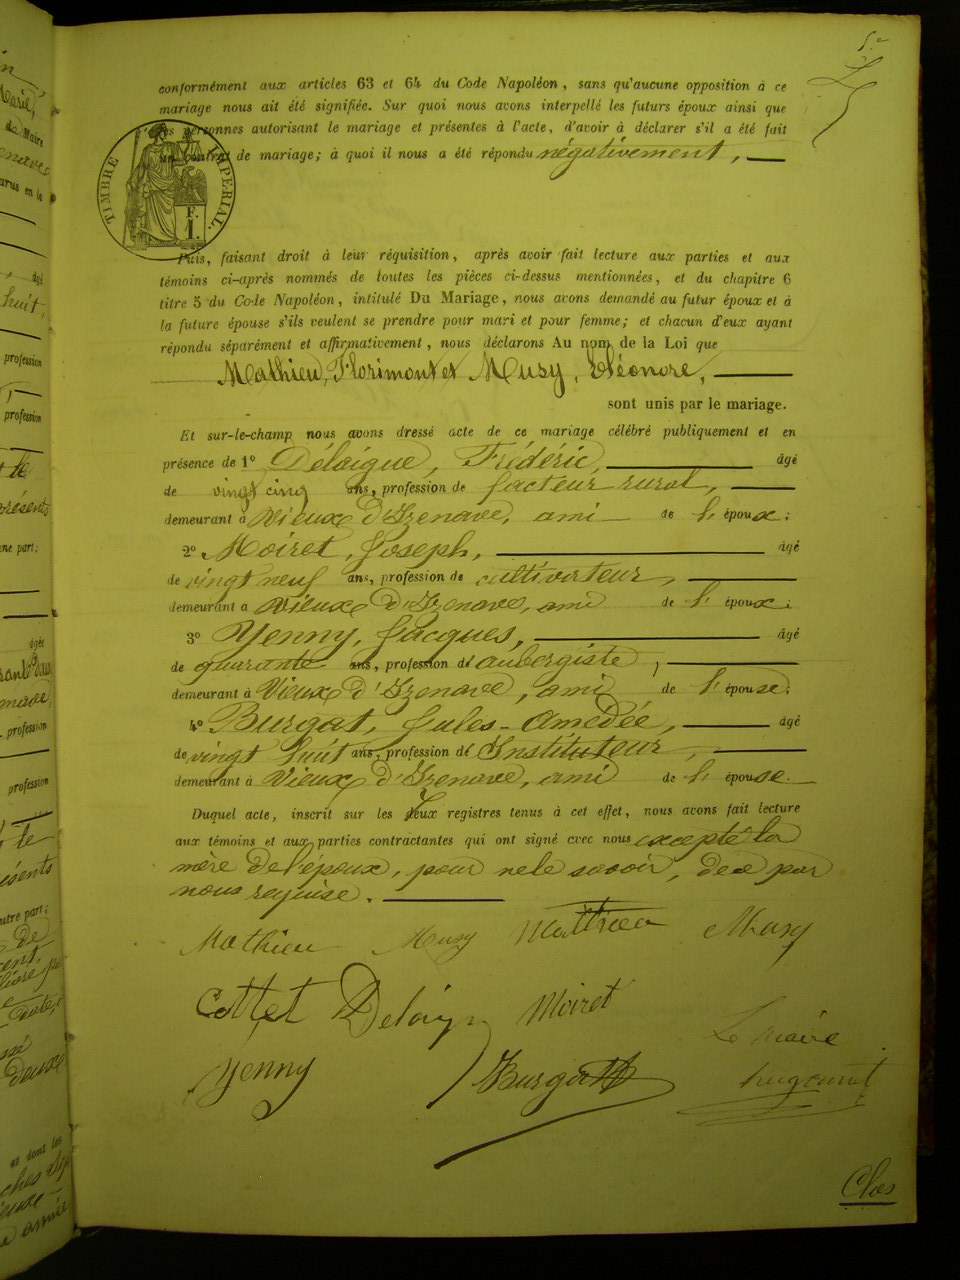 5.e
conformément aux articles 63 et 64 du Code Napoléon, sans qu'aucune opposition à ce
mariage nous ait été signifiée. Sur quoi nous avons interpellé les futurs époux ainsi que
les personnes autorisant le mariage et présentes à l'acte, d'avoir à déclarer s'il a été fait
un contrat de mariage; à quoi il nous a été répondu négativement,
TIMBRE IMPERIAL.
F.
1.
Puis, faisant droit à leur réquisition, après avoir fait lecture aux parties et aux
témoins ci-après nommés de toutes les pièces ci-dessus mentionnées, et du chapitre 6
titre 5 du Code Napoléon, intitulé Du Mariage, nous avons demandé au futur époux et à
la future épouse s'ils veulent se prendre pour mari et pour femme; et chacun d'eux ayant
répondu séparément et affirmativement, nous déclarons Au nom de la Loi que
Mathieu, Florimont et Musy, Eléonore,
sont unis par le mariage.
Et sur-le-champ nous avons dressé acte de ce mariage célébré publiquement et en
présence de 1º Délaigue, Frédéric, âgé
de vingt cinq ans, profession de facteur rural,
demeurant à Vieux d'Izenave, ami de l'époux;
2º Moiret, Joseph, âgé
de vingt neuf ans, profession de cultivateur,
demeurant à Vieux d'Izenave, ami de l'époux;
3º Yenny, Jacques, âgé
de quarante ans, profession de aubergiste,
demeurant à Vieux d'Izenave, ami de l'épouse;
4º Burgat, Jules-Amédée, âgé
de vingt huit ans, profession de Instituteur,
demeurant à Vieux d'Izenave, ami de l'épouse.
Duquel acte, inscrit sur les deux registres tenus à cet effet, nous avons fait lecture
aux témoins et aux parties contractantes qui ont signé avec nous excepté la
mère de l'époux, pour ne le savoir, de ce par
nous requise.
Mathieu Musy Mathieu Musy
Cottet Delaigue Moiret
Le maire
Yenny Burgat
Clos